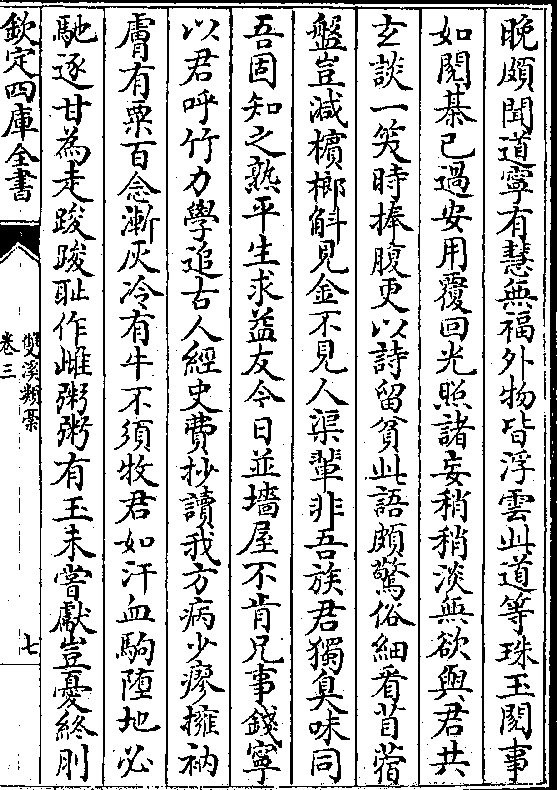 晚頗聞道寧有慧無福外物皆浮雲此道等珠玉閱事
如閱棊已過安用覆回光照諸妄稍稍淡無欲與君共
玄談一笑時捧腹更以詩留貧此語頗驚俗細看苜蓿
盤豈減檳榔斛見金不見人渠輩非吾族君獨臭味同
吾固知之熟平生求益友今日並墻屋不肯兄事錢寧
以君呼竹力學追古人經史費抄讀我方病少瘳擁衲
膚有粟百念漸灰冷有牛不須牧君如汗血駒墮地必
馳逐甘為走踆踆耻作雌粥粥有玉未嘗獻豈憂終刖
欽定四庫全書
雙溪類藁
卷三
七